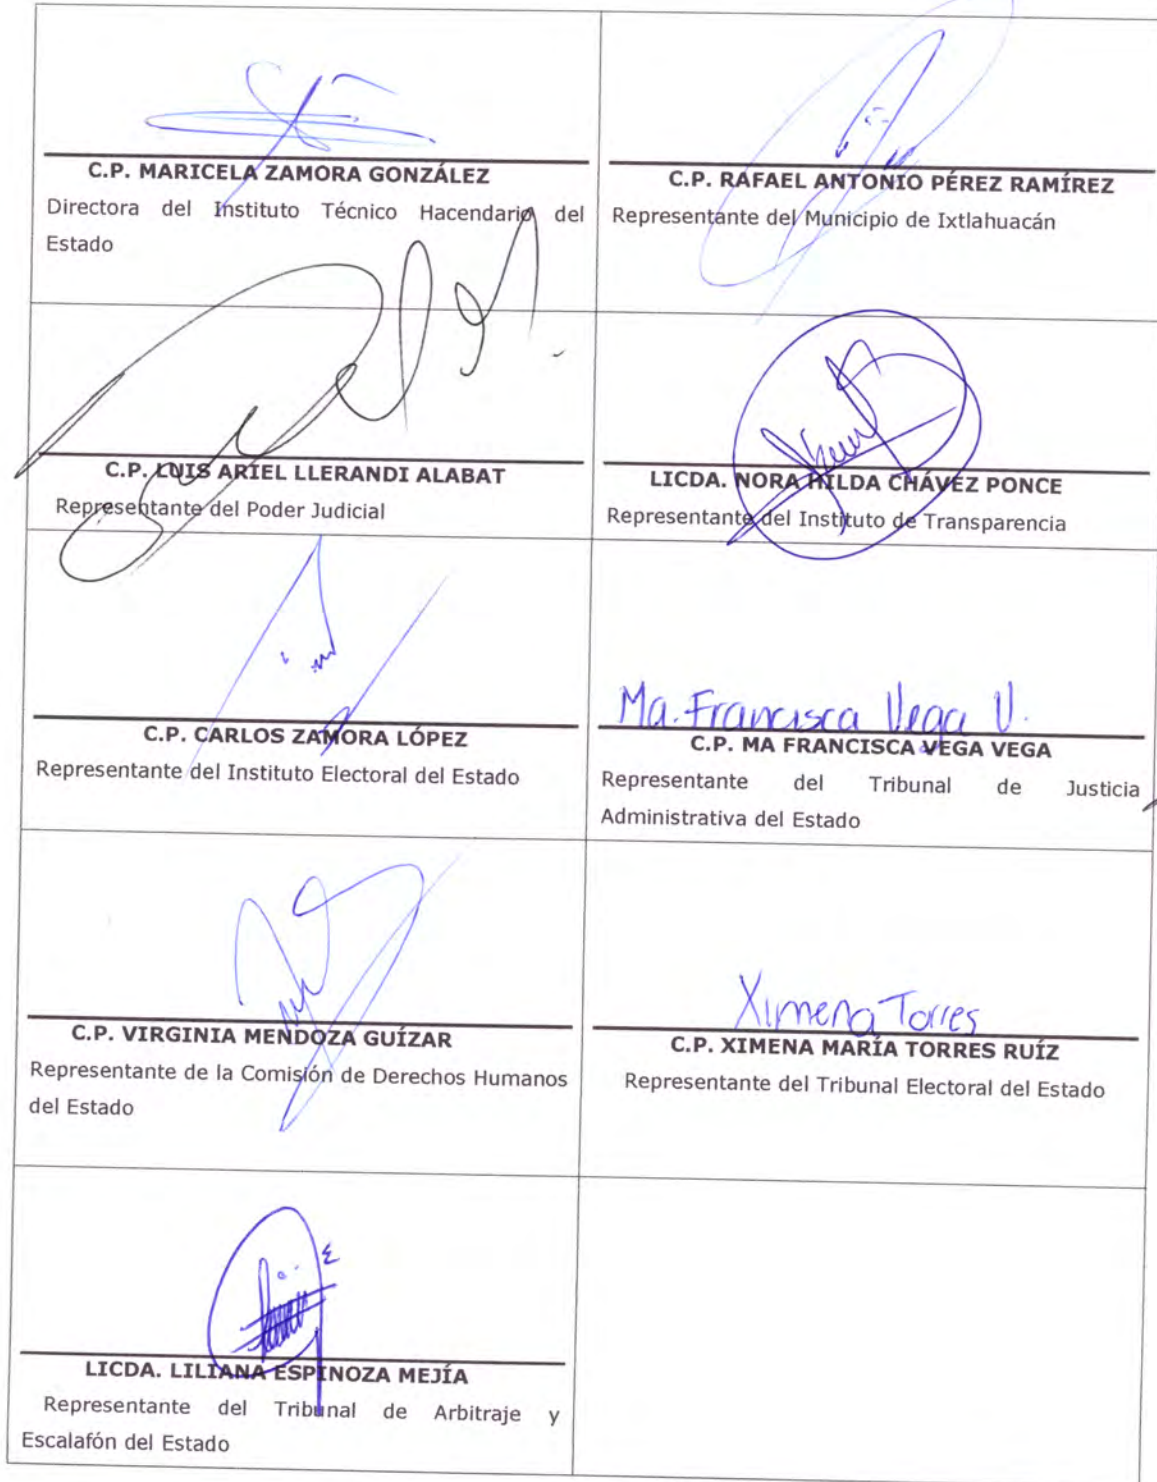 C.P. MARICELA ZAMORA GONZÁLEZ
Directora del Instituto Técnico Hacendario del
Estado
C.P. RAFAEL ANTONIO PÉREZ RAMÍREZ
Representante del Municipio de Ixtlahuacán
C.P. LUIS ARIEL LLERANDI ALABAT
Representante del Poder Judicial
LICDA. NORA HILDA CHÁVEZ PONCE
Representante del Instituto de Transparencia
C.P. CARLOS ZAMORA LÓPEZ
Representante del Instituto Electoral del Estado
Ma. Francisca Vega V.
C.P. MA FRANCISCA VEGA VEGA
Representante del Tribunal de Justicia
Administrativa del Estado
C.P. VIRGINIA MENDOZA GUÍZAR
Representante de la Comisión de Derechos Humanos
del Estado
Ximena Torres
C.P. XIMENA MARÍA TORRES RUÍZ
Representante del Tribunal Electoral del Estado
LICDA. LILIANA ESPINOZA MEJÍA
Representante del Tribunal de Arbitraje y
Escalafón del Estado